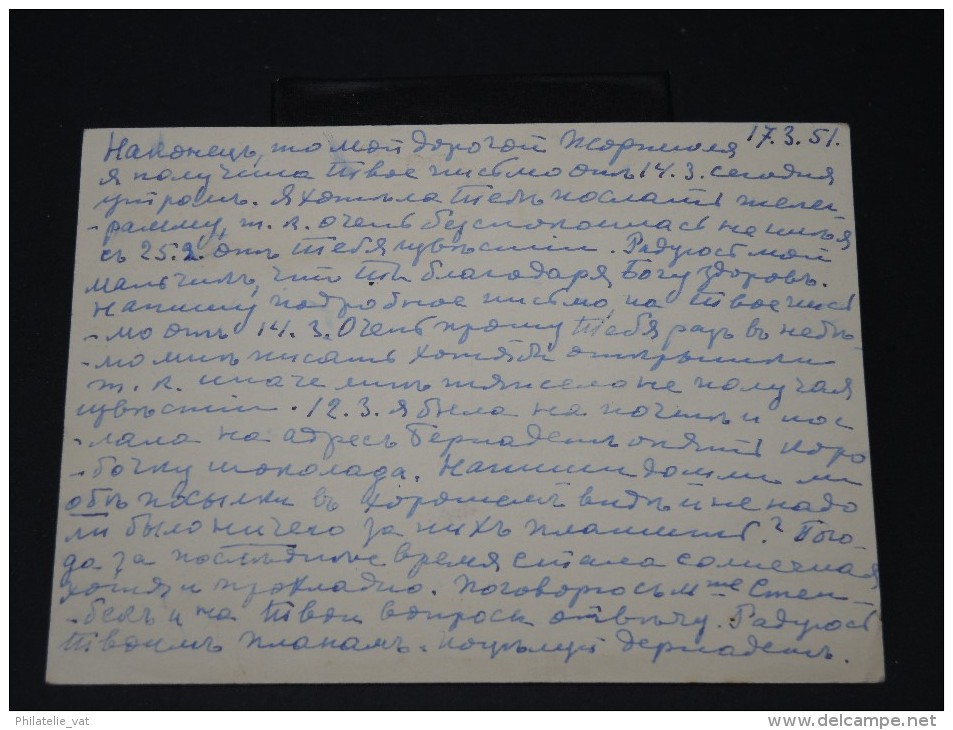 17.3.51.
Наконецъ, то мой дорогой Жоржуля
я получила твое письмо отъ 14.3. сегодня
утромъ. Я хотѣла тебѣ послать телег-
-рамму, т.к. очень безпокоилась не имѣя
съ 25.2. отъ тебя извѣстій. Радуюсь мой
мальчикъ, что ты благодаря Богу здоровъ.
Напишу подробное письмо, на твое пись
-мо отъ 14.3. Очень прошу тебя разъ въ недѣ-
-лю мнѣ писать хотябъ открытки
т.к. иначе мнѣ тяжело не получая
извѣстій. 12.3. я была на почтѣ и пос
-лала на адресъ Бернадетъ опять коро
-бочку шоколада. Напиши дошли ли
обѣ посылки въ хорошемъ видѣ и не надо
ли было ничего за нихъ платить? Пого-
да за послѣднее время стала солнечная
хотя и прохладно. Поговорю съ Mme Стем-
-бель и на твои вопросы отвѣчу. Радуюсь
твоимъ планамъ. Поцѣлуй Бернадетъ.
Philatelie_vat
www.delcampe.net